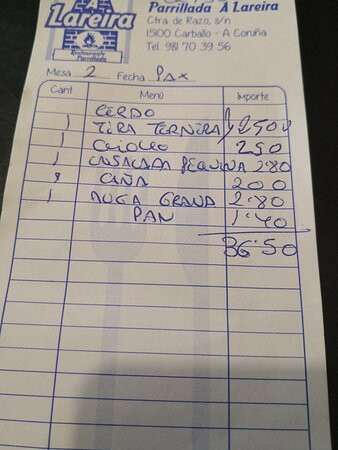 A
Lareira
Restaurante
Parrillada
Parrillada A Lareira
Ctra de Razo, s/n
15100 Carballo - A Coruña
Tel. 981 70 39 56
Mesa 2 Fecha PAX
Cant Menú Importe
CERDO
1 TIRA TERNERA 2500
1 250
1 ENSALADA 2'80
CAÑA 200
1 GRAND 2'80
PAN 1'40
36'50